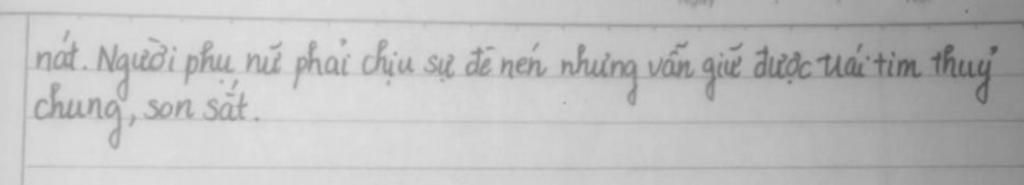 nát. Người phụ nữ phải chịu sự đè nén nhưng vẫn giữ được trái tim thuỷ
chung, son sắt.